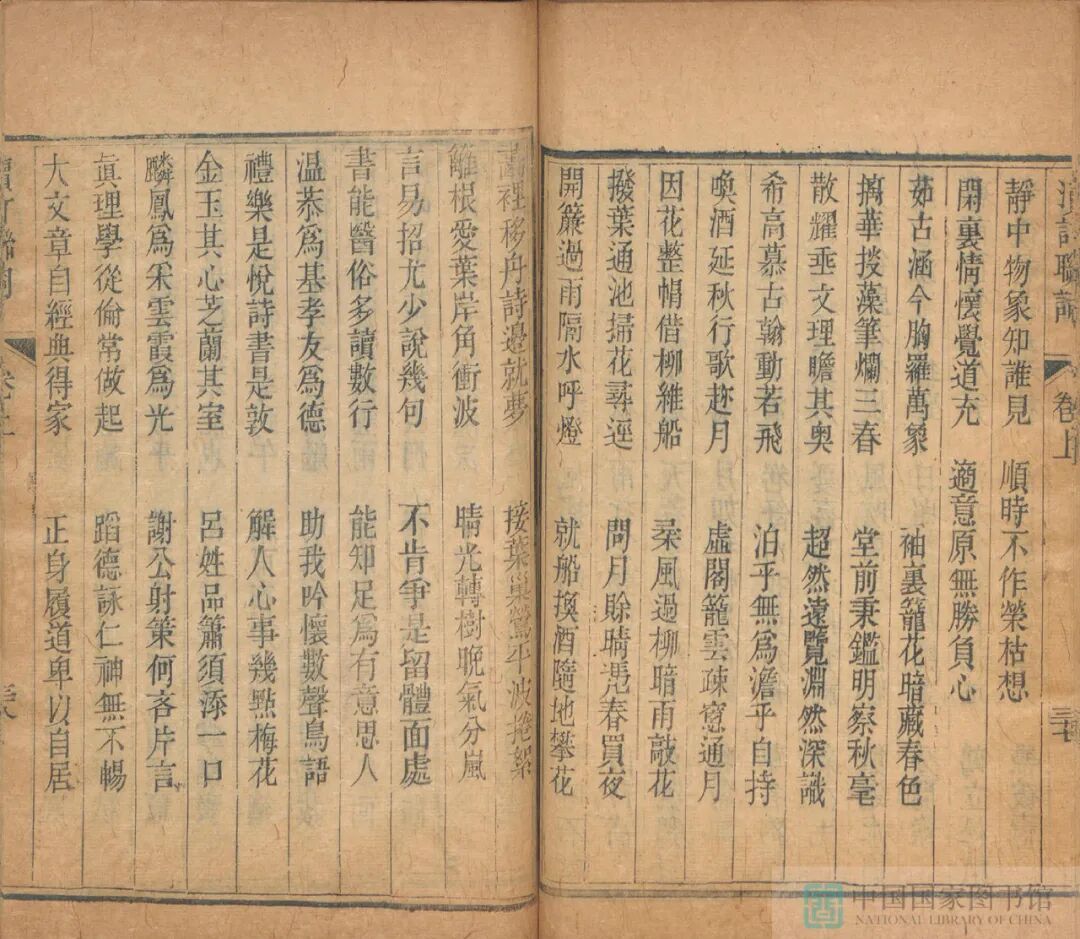 漢言聯
卷上
三七
靜中物象知誰見 順時不作榮枯想
閑裏情懷覺道充 適意原無勝負心
茹古涵今胸羅萬象 袖裏籠花暗藏春色
摛華掞藻筆爛三春 堂前秉鑑明察秋毫
散耀垂文理瞻其奧 超然遠覽淵然深識
希高慕古翰動若飛 泊乎無為澹乎自持
喚酒延秋行歌趂月 虛閣籠雲疎窻通月
因花整帽借柳維船 采風過柳暗雨敲花
撥葉通池掃花尋逕 問月賒晴凴春買夜
開簾過雨隔水呼燈 就船換酒隨地攀花
裡移舟詩邊就夢 接葉巢鶯平波捲絮
籬根愛葉岸角衝波 晴光轉樹晚氣分嵐
言易招尤少說幾句 不肯爭是留體面處
書能醫俗多讀數行 能知足為有意思人
温恭為基孝友為德 助我吟懷數聲鳥語
禮樂是悅詩書是敦 解人心事幾點梅花
金玉其心芝蘭其室 呂姓品簫須添一口
麟鳳為采雲霞為光 謝公射策何吝片言
眞理學從倫常做起 蹈德詠仁神無不暢
大文章自經典得家 正身履道卑以自居
中国国家图书馆
NATIONAL LIBRARY OF CHINA